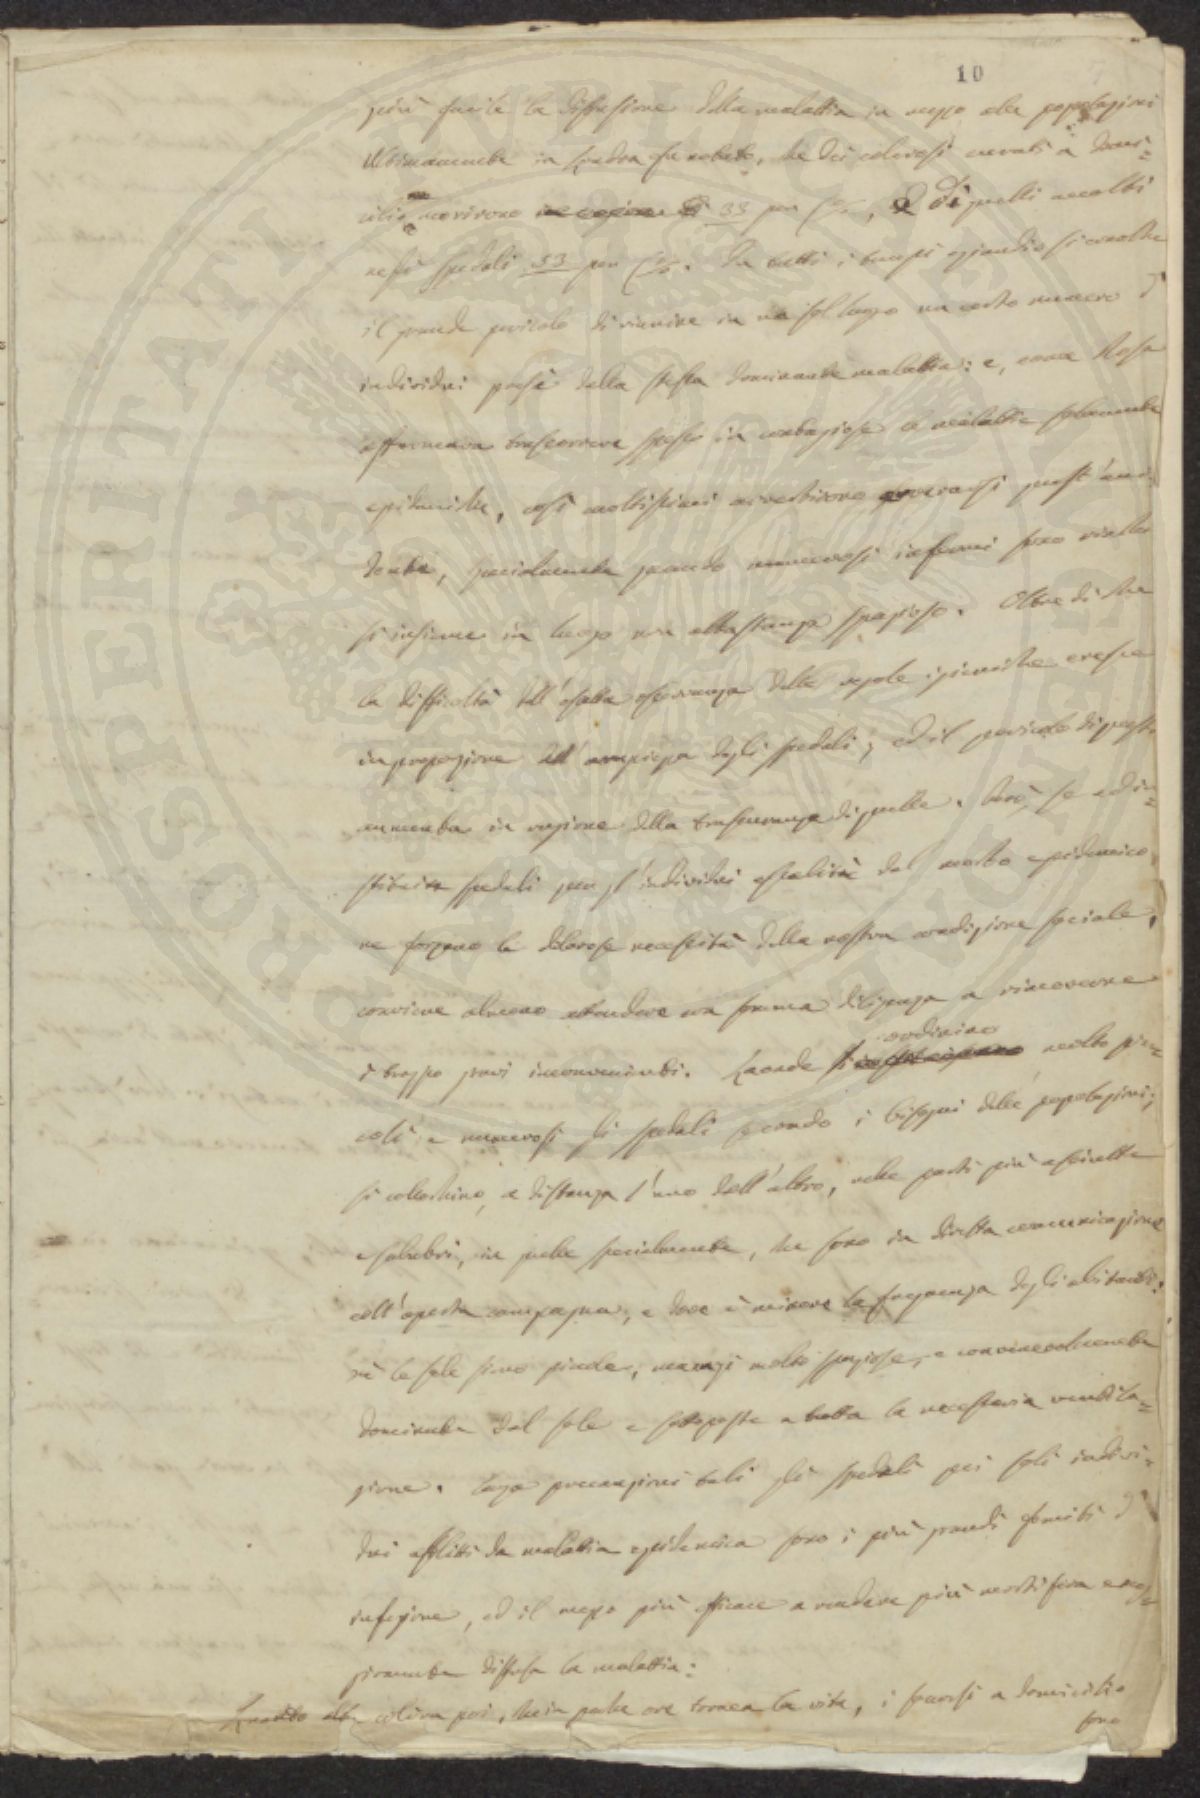 10
più facile la diffusione della malattia in mezzo alle popolazioni
Ultimamente in Londra fu notato, che dei colerosi curati a domi=
cilio morirono 33 per %, e di quelli accolti
negli spedali 53 per %. In tutti i tempi eziandio si conobbe
il grande pericolo di riunire in un sol luogo un certo numero d'
individui presi della stessa dominante malattia: e, come Rosa
affermava trascorrere spesso in contagiose le malattie solamente
epidemiche, così moltissimi avvertirono quest'
specialmente quando numerosi infermi sono
si insieme in luogo non abbastanza spazioso. Oltre di che
la difficoltà dell'esatta osservanza delle regole igieniche cresce
in proporzione dell'ampiezza degli spedali; ed il pericolo di questi
aumenta in ragione della trascuranza di quelle. Però, se ad i=
stituire spedali per gl'individui assaliti dal morbo epidemico
ne forzano le dolorose necessità della nostra condizione sociale,
conviene almeno attendere con somma diligenza a rimoverne
i troppo gravi inconvenienti. Laonde si ordinino molto pic=
coli e numerosi gli spedali secondo i bisogni delle popolazioni;
si collochino, a distanza l'uno dall'altro, nelle parti più asciutte
e salubri, in quelle specialmente, che sono in diretta comunicazione
coll'aperta campagna, e dove è minore la frequenza degli abitanti:
nè le sale sieno picciole, ma anzi molto spaziose, e convenevolmente
dominate dal sole e sottoposte a tutta la necessaria ventila=
zione. Senza precauzioni tali gli spedali pei soli indivi=
dui afflitti da malattia epidemica sono i più grandi fomiti d'
infezione, ed il mezzo più efficace a rendere più mortifera e mag=
giormente diffusa la malattia:
Quanto alla colera poi, che in poche ore tronca la vita, i soccorsi a domicilio
sono
PROSPERITATI PVBLICAE